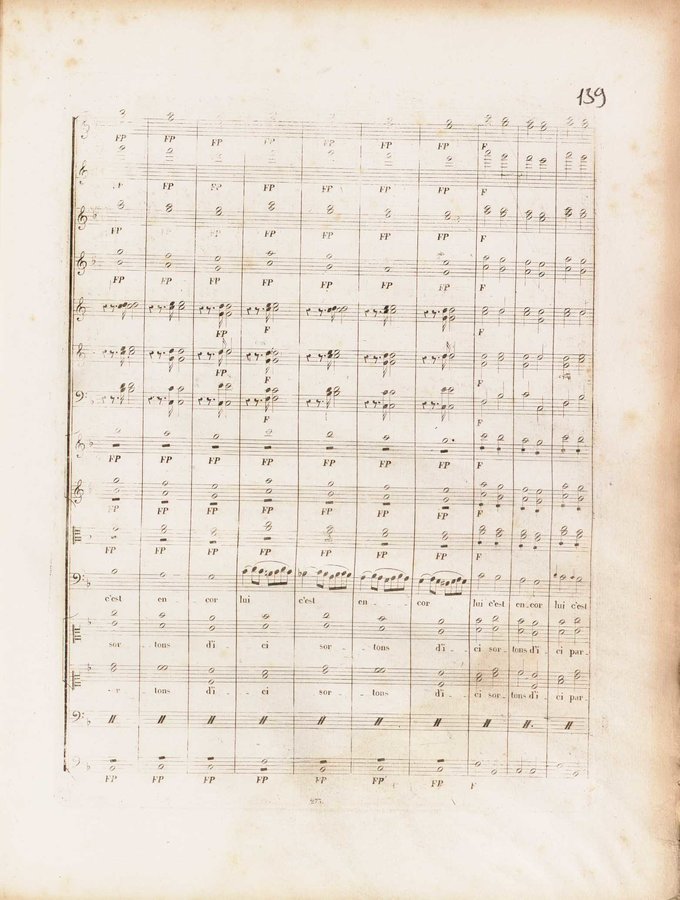 139
FP FP FP FP FP FP FP F
FP FP FP FP FP FP FP F
FP FP FP FP FP FP FP F
FP FP FP FP FP FP FP F
FP F F
FP F F
F
FP FP FP FP FP FP FP F
FP FP FP FP FP FP FP F
FP FP FP FP FP FP FP F
c'est en cor lui c'est en - - cor lui c'est en - cor lui c'est
sor - tons d'i - ci sor - tons d'i - ci sor - tons d'i - ci par -
tons d'i - ci sor - tons d'i - ci sor - tons d'i - ci par -
FP FP FP FP FP FP FP F
273.